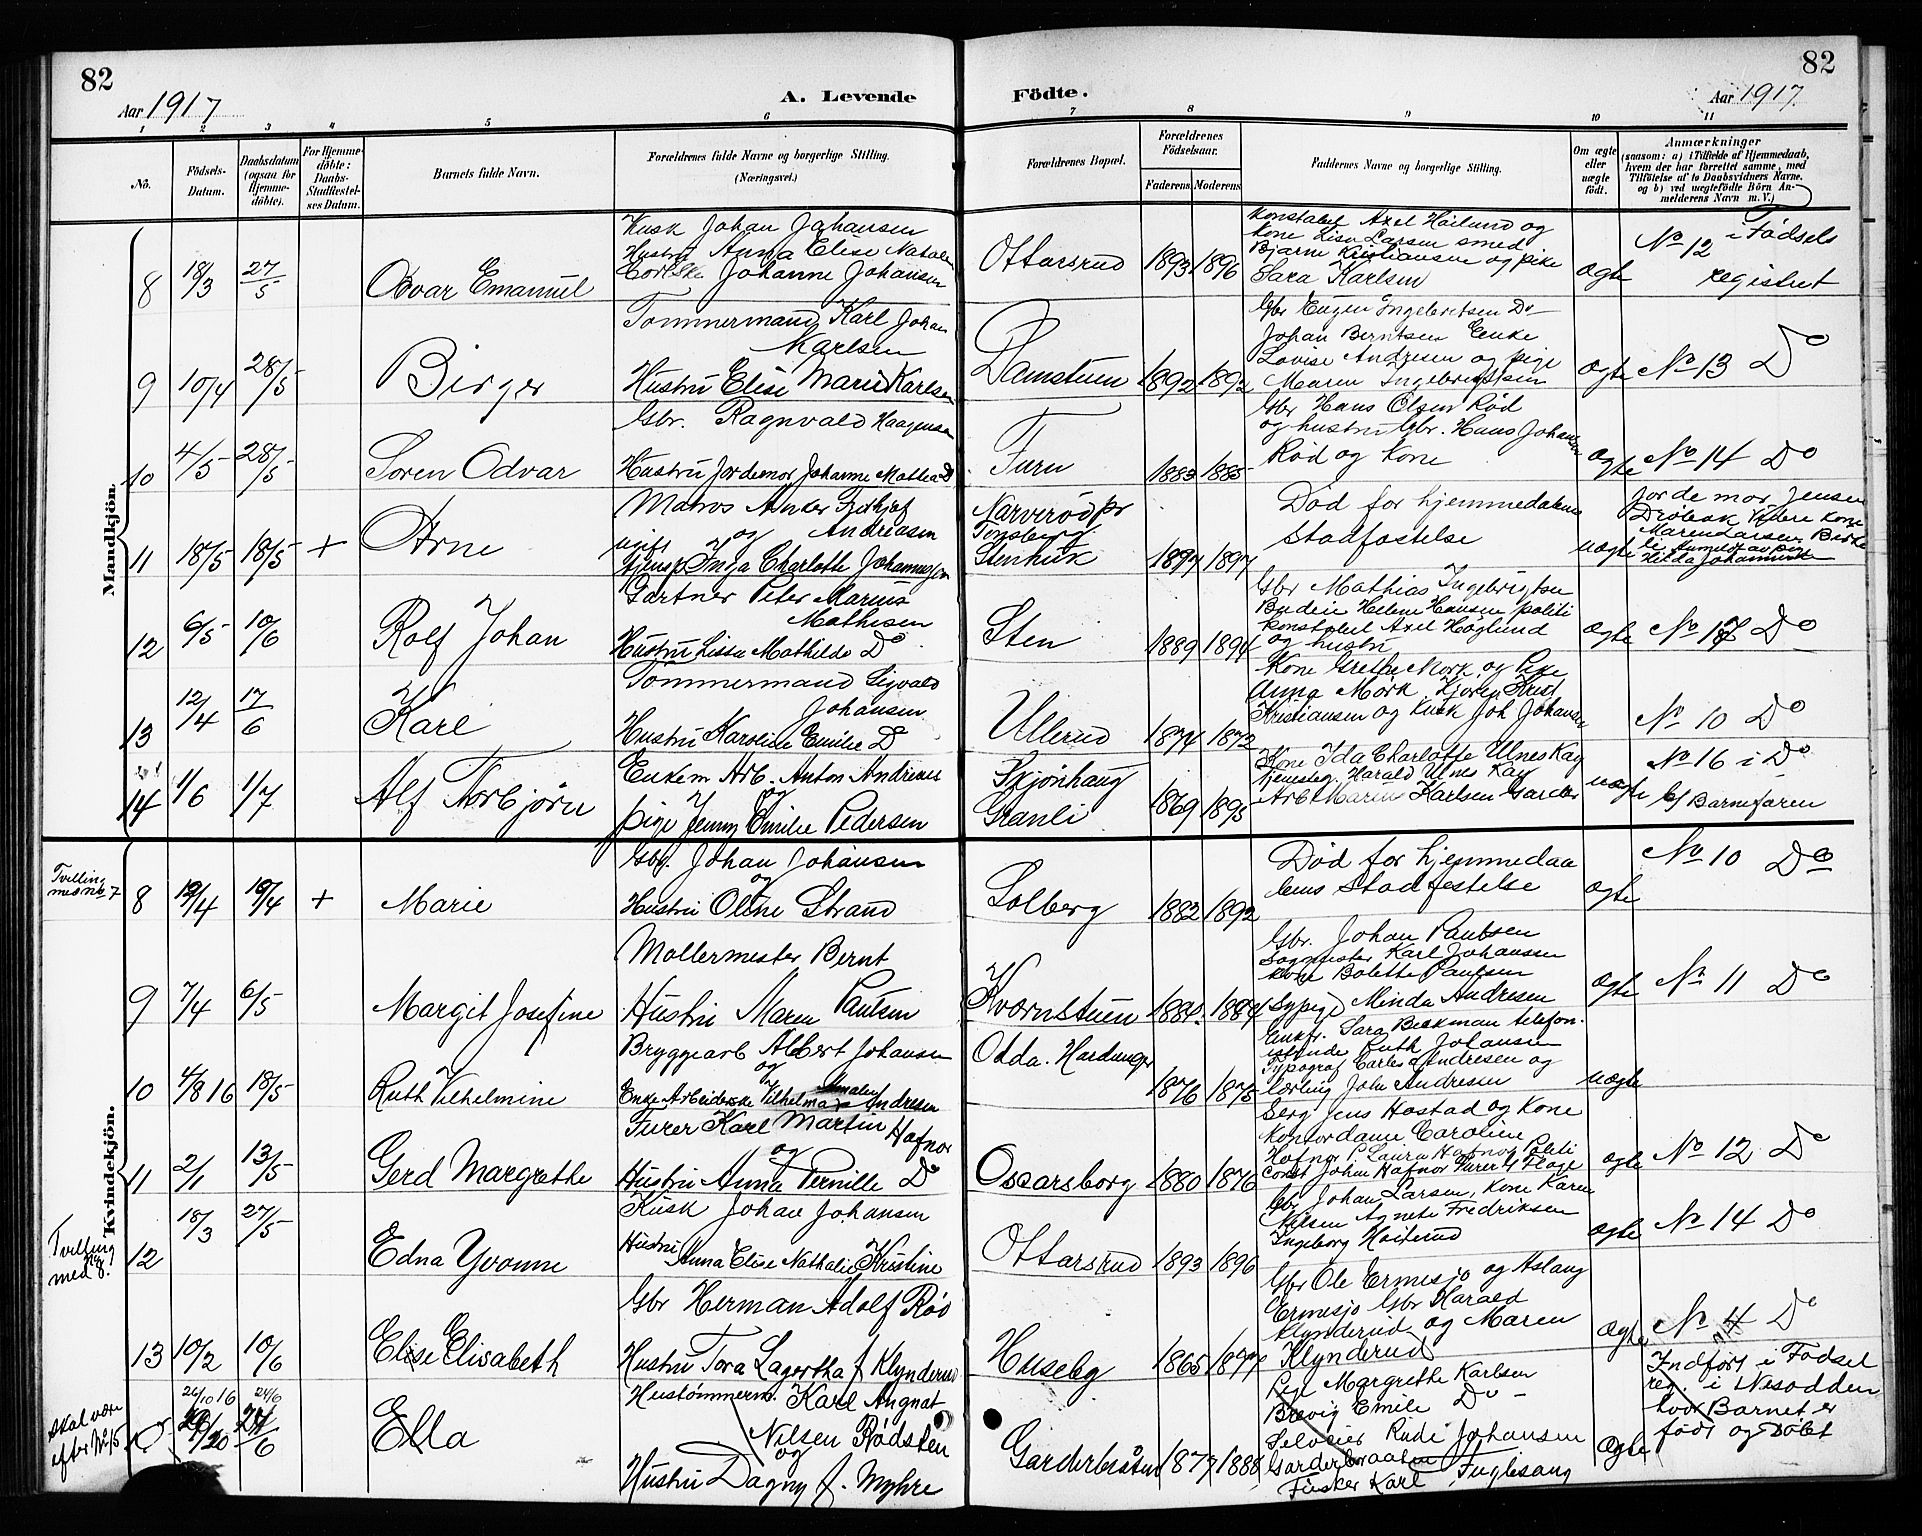 82
82
Aar 1917
A. Levende
Födte.
Aar 1917.
1 2 3 4 5 6 7 8 9 10 11
No.
Födsels-Datum.
Daabsdatum (ogsaa for Hjemme-döbte).
For Hjemme-döbte: Daabs-Stadfæstel-ses Datum.
Barnets fulde Navn.
Forældrenes fulde Navne og borgerlige Stilling.
(Næringsvei.)
Forældrenes Bopæl.
Forældrenes Födselsaar.
Faderens
Moderens
Faddernes Navne og borgerlige Stilling.
Om ægte eller uægte födt.
Anmærkninger
(saasom: a) i Tilfælde af Hjemmedaab, hvem der har forrettet samme, med Tilföielse af to Daabsvidners Navne, og b) ved uægtefödte Börn An-melderens Navn m. V.)
Mandkjön.
8 18/3 27/5 Osvar Emanuel
Kusk Johan Johansen
Hustru Anna Elise Natalie
Johanne Johansen
Ottarsrud 1893 1896
Konstabel Axel Höilund og
Kone Lisa Larsen smed
Bjarne Kristiansen og pike
Sara Karlsen
ægte
No 12 i Fødsels
registret
9 10/4 28/5 Birger
Tømmermand Karl Johan
Karlsen
Hustru Elise Marie Karlsen
Damstuen 1892 1892
Gbr Eugen Ingebretsen Do
Johan Berntsen Enke
Lovise Andresen og pige
Maren Ingebrigtsen
ægte No 13 Do
10 4/5 28/5 Soren Odvar
Gbr. Ragnvald Haagensen
Hustru Jordemor Johanne Mathea Do
Furu 1883 1885
Gbr Hans Olsen Rød
og hustru Gbr. Hans Johansen
Rød og kone
ægte No 14 Do
11 18/5 18/5 + Arne
Matros Anker Fridtjof
og Andreasen
Inga Charlotte Johannesen
Narverød pr
Tønsberg
Stenhuk 1897 1897
Død før hjemmedaabens
Stadfæstelse
uægte
Jordemor Jensen
Drøbak Videre kone
Maren Larsen
Hilda Johannesen
12 6/5 10/6 Rolf Johan
Gartner Peter Marius
Mathisen
Hustru Lissa Mathilde Do
Sten 1889 1894
Gbr Mathias Ingebrigtsen
Budeie Helene Hansen politi
konstabel Axel Höglund
og hustru
ægte No 17 Do
13 12/4 17/6 Karl
Tömmermand Sigvald
Johansen
Hustru Karoline Emilie Do
Ullerud 1874 1873
Kone Grethe Mørk og Pike
Anna Mørk
Kristiansen og Kusk Joh Johansen
No 10 Do
14 1/6 1/7 Alf Torbjörn
Enkem Arb. Anton Andreas
og
pige Jenny Emilie Pedersen
Skjönhaug
Granli 1869 1895
Kone Ida Charlotte Ulnes Kay
Harald Ulnes Kay
Arb Marius Karlsen Garder
uægte
No 16 i Do
b/ Barnefaren
Kvindekjön.
Tvilling
med no 7
8 12/4 19/4 + Marie
Gbr. Johan Johansen
og
Hustru Oline Strand
Solberg 1882 1892
Død før hjemmedaa
bens Stadfestelse
ægte
No 10 Do
9 7/4 6/5 Margit Josefine
Møllermester Bernt
Hustru Maren Paulsen
Kværnstuen 1884. 1884
Gbr. Johan Paulsen
Sagmester Karl Johansen
Kone Bolette Paulsen
Sypige Minda Andresen
ægte No 11 Do
10 4/8 16 18/5 Ruth Vilhelmine
Bryggearb Albert Johansen
og
Enke Arbeiderske Vilhelma Amalie Andresen
Odda. Hardanger
1876 1875
Enkefr. Sara Beckman telefon-
istinde Ruth Johansen
Typograf Carles Andresen og
lærling John Andresen
uægte
11 2/1 13/5 Gerd Margrethe
Furer Karl Martin Hafnor
og
Hustru Anna Pernille Do
Oscarsborg 1880 1876
Serg Jens Hostad og Kone
Kontordame Caroline
Hafnor P. Laura Hafnor Politi
const Johan Hafnor Furer
ægte No 12 Do
Tvilling
med no 8.
12 18/3 27/5 Edna Yvonne
Kusk Johan Johansen
Hustru
Anna Elise Nathalie Kristine
Ottarsrud 1893 1896
Gbr Johan Larsen, Kone Karen
Nilsen Agnete Fredriksen
Ingeborg Hoiterud
ægte No 14 Do
13 10/2 10/6 Elise Elisabeth
Gbr Herman Adolf Rød
Hustru Tora Lagertha f Klynderud
Huseby 1865 1877
Gbr Ole Ermesjo og Aslaug
Ermesjo Gbr Harald
Klynderud og Maren
Klynderud
ægte No 4 Do
skal være
efter No 15
26/10 16 24/6
Ella
Karl August
Nilsen Rødsten
og
Hustru Dagny f. Myhre
Garderbråten 1877 1888
Pige Margrethe Karlsen
Brevig Emilie Do
Selveier Rudi Johansen
Garderbraaten Fuglesang
Fisker Karl
ægte
Indført i Fødsel
reg. i Nesodden
hvor Barnet er
født og Døbt